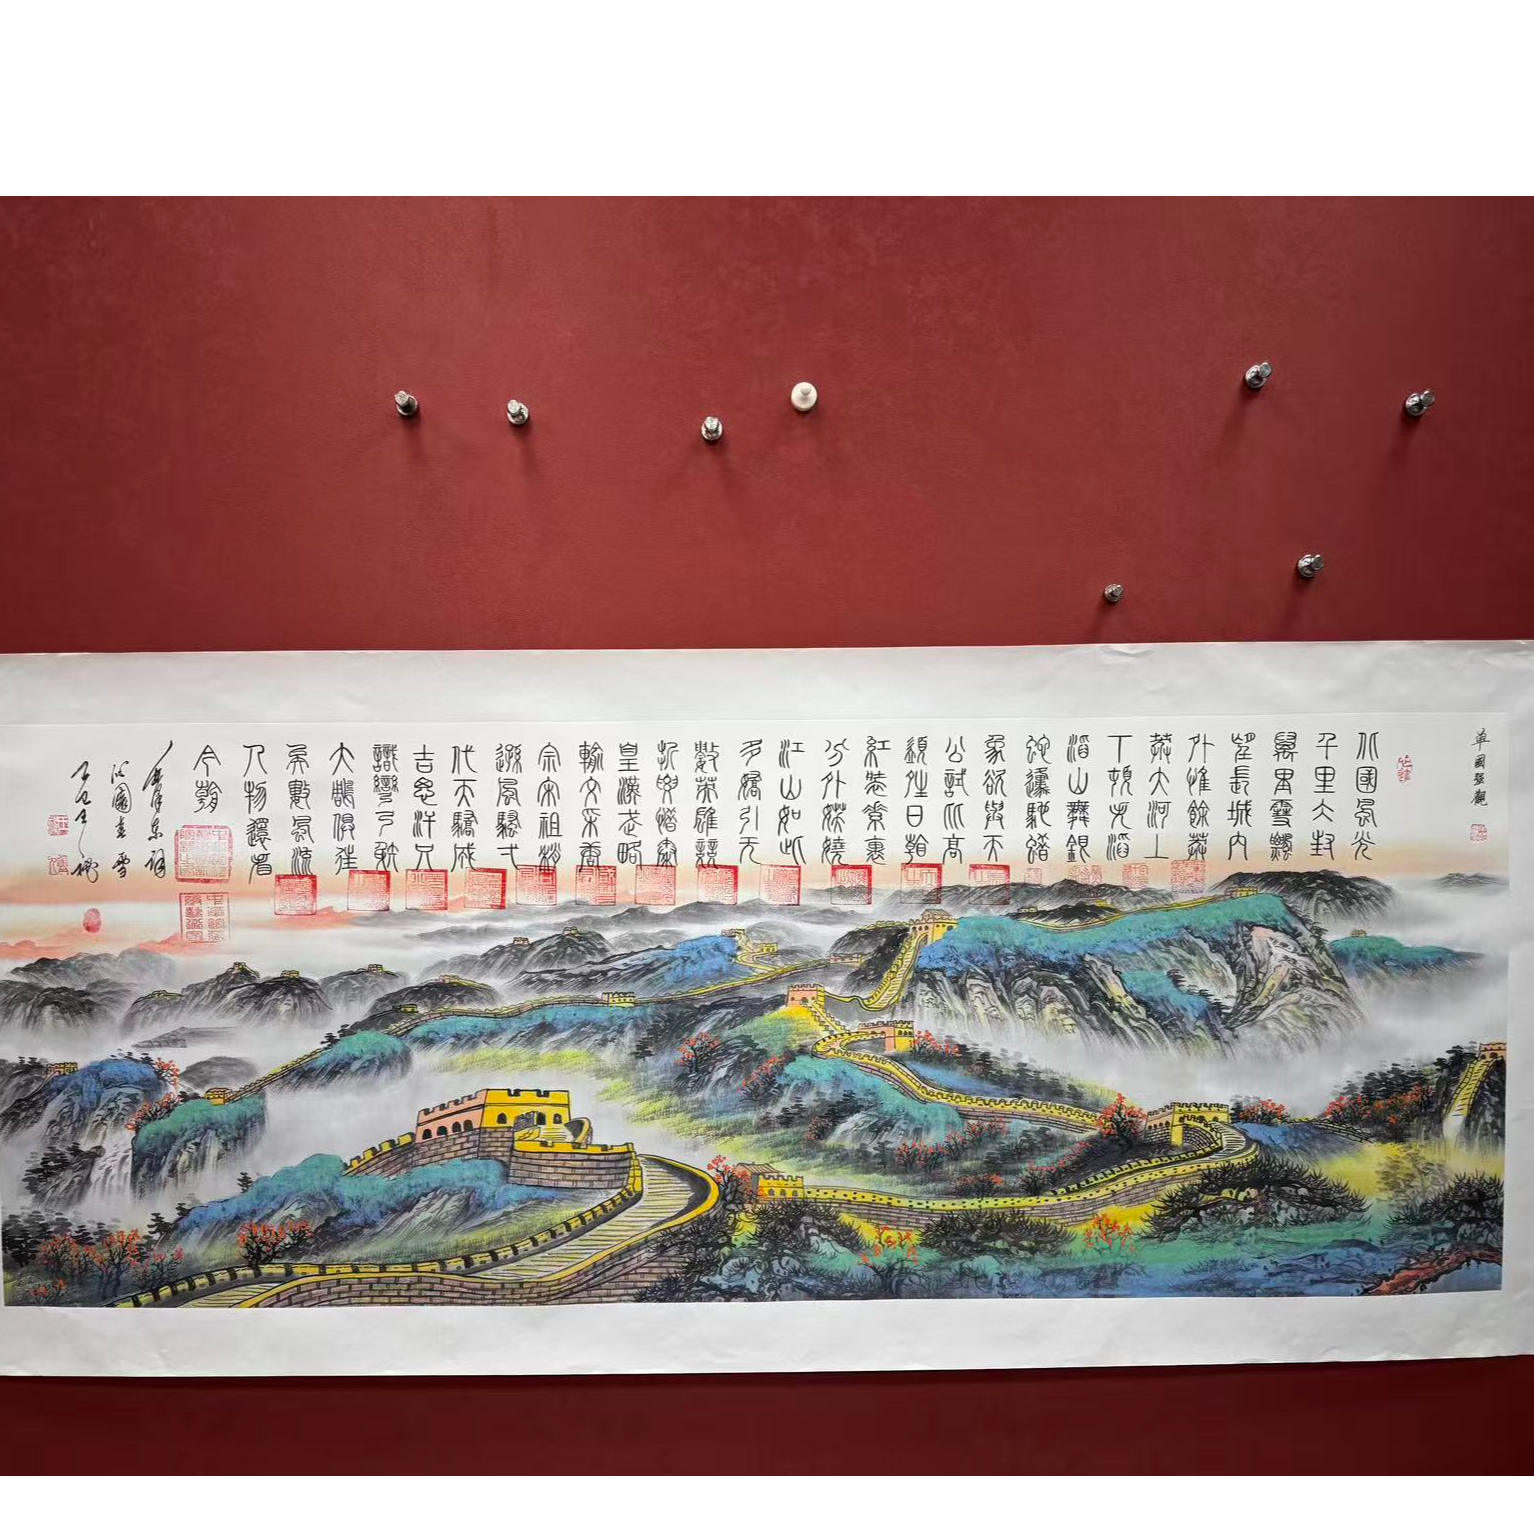 单國强觀
北國風光
千里冰封
萬里雪飄
望長城內
外惟餘莽
莽大河上
下頓失滔
滔山舞銀
蛇邍馳蠟
象欲與天
公試比高
須晴日看
紅裝素裹
分外妖嬈
江山如此
多嬌引无
數英雄競
折腰惜秦
皇漢武略
輸文采唐
宗宋祖稍
遜風騷弌
代天驕成
吉思汗只
識彎弓射
大鵰俱往
矣數風流
人物還看
今朝
毛澤東詞
沁園春雪